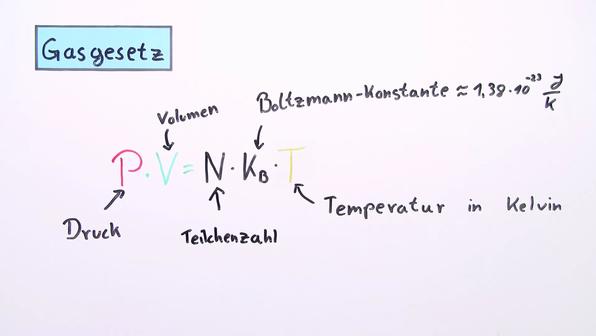 Gasgesetz
Volumen
Boltzmann-Konstante ≈ 1,38·10⁻²³ J/K
P·V = N·K_B·T
Druck
Teilchenzahl
Temperatur in Kelvin